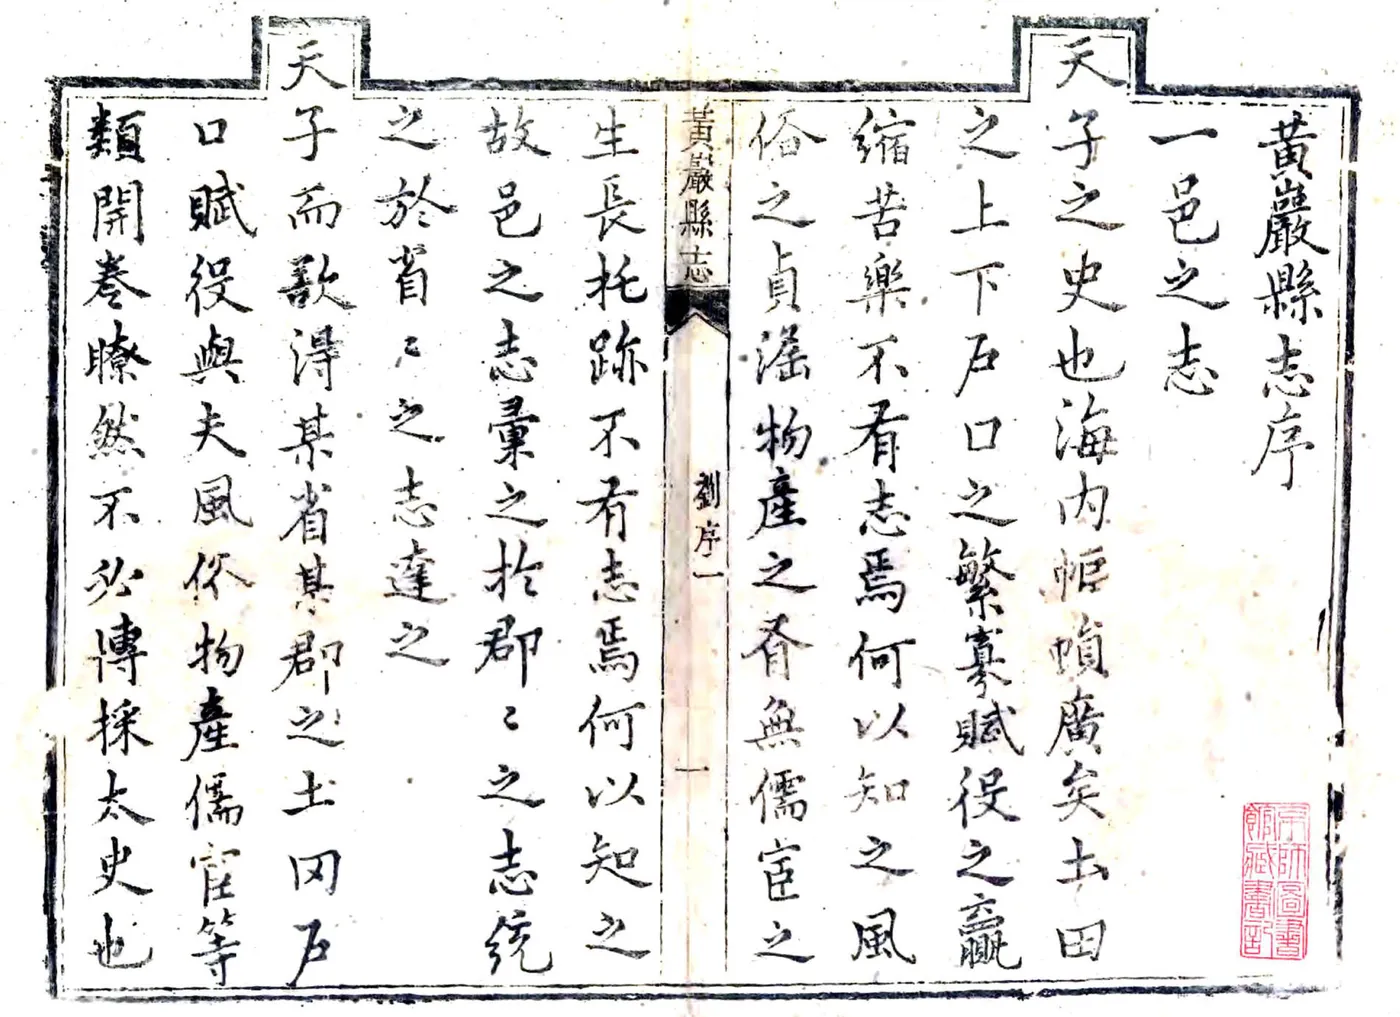 黃巖縣志序
一邑之志
天子之史也海內幅幀廣矣土田
之上下戶口之繁寡賦役之贏
縮苦樂不有志焉何以知之風
俗之貞滛物產之有無儒宦之
黃巖縣志 劉序一 一
生長托跡不有志焉何以知之
故邑之志彙之於郡〻之志統
之於省〻之志達之
天子而得某省某郡之土田戶
口賦役與夫風俗物產儒宦等
類開卷瞭然不必傳採太史也
京師圖書
館藏書記